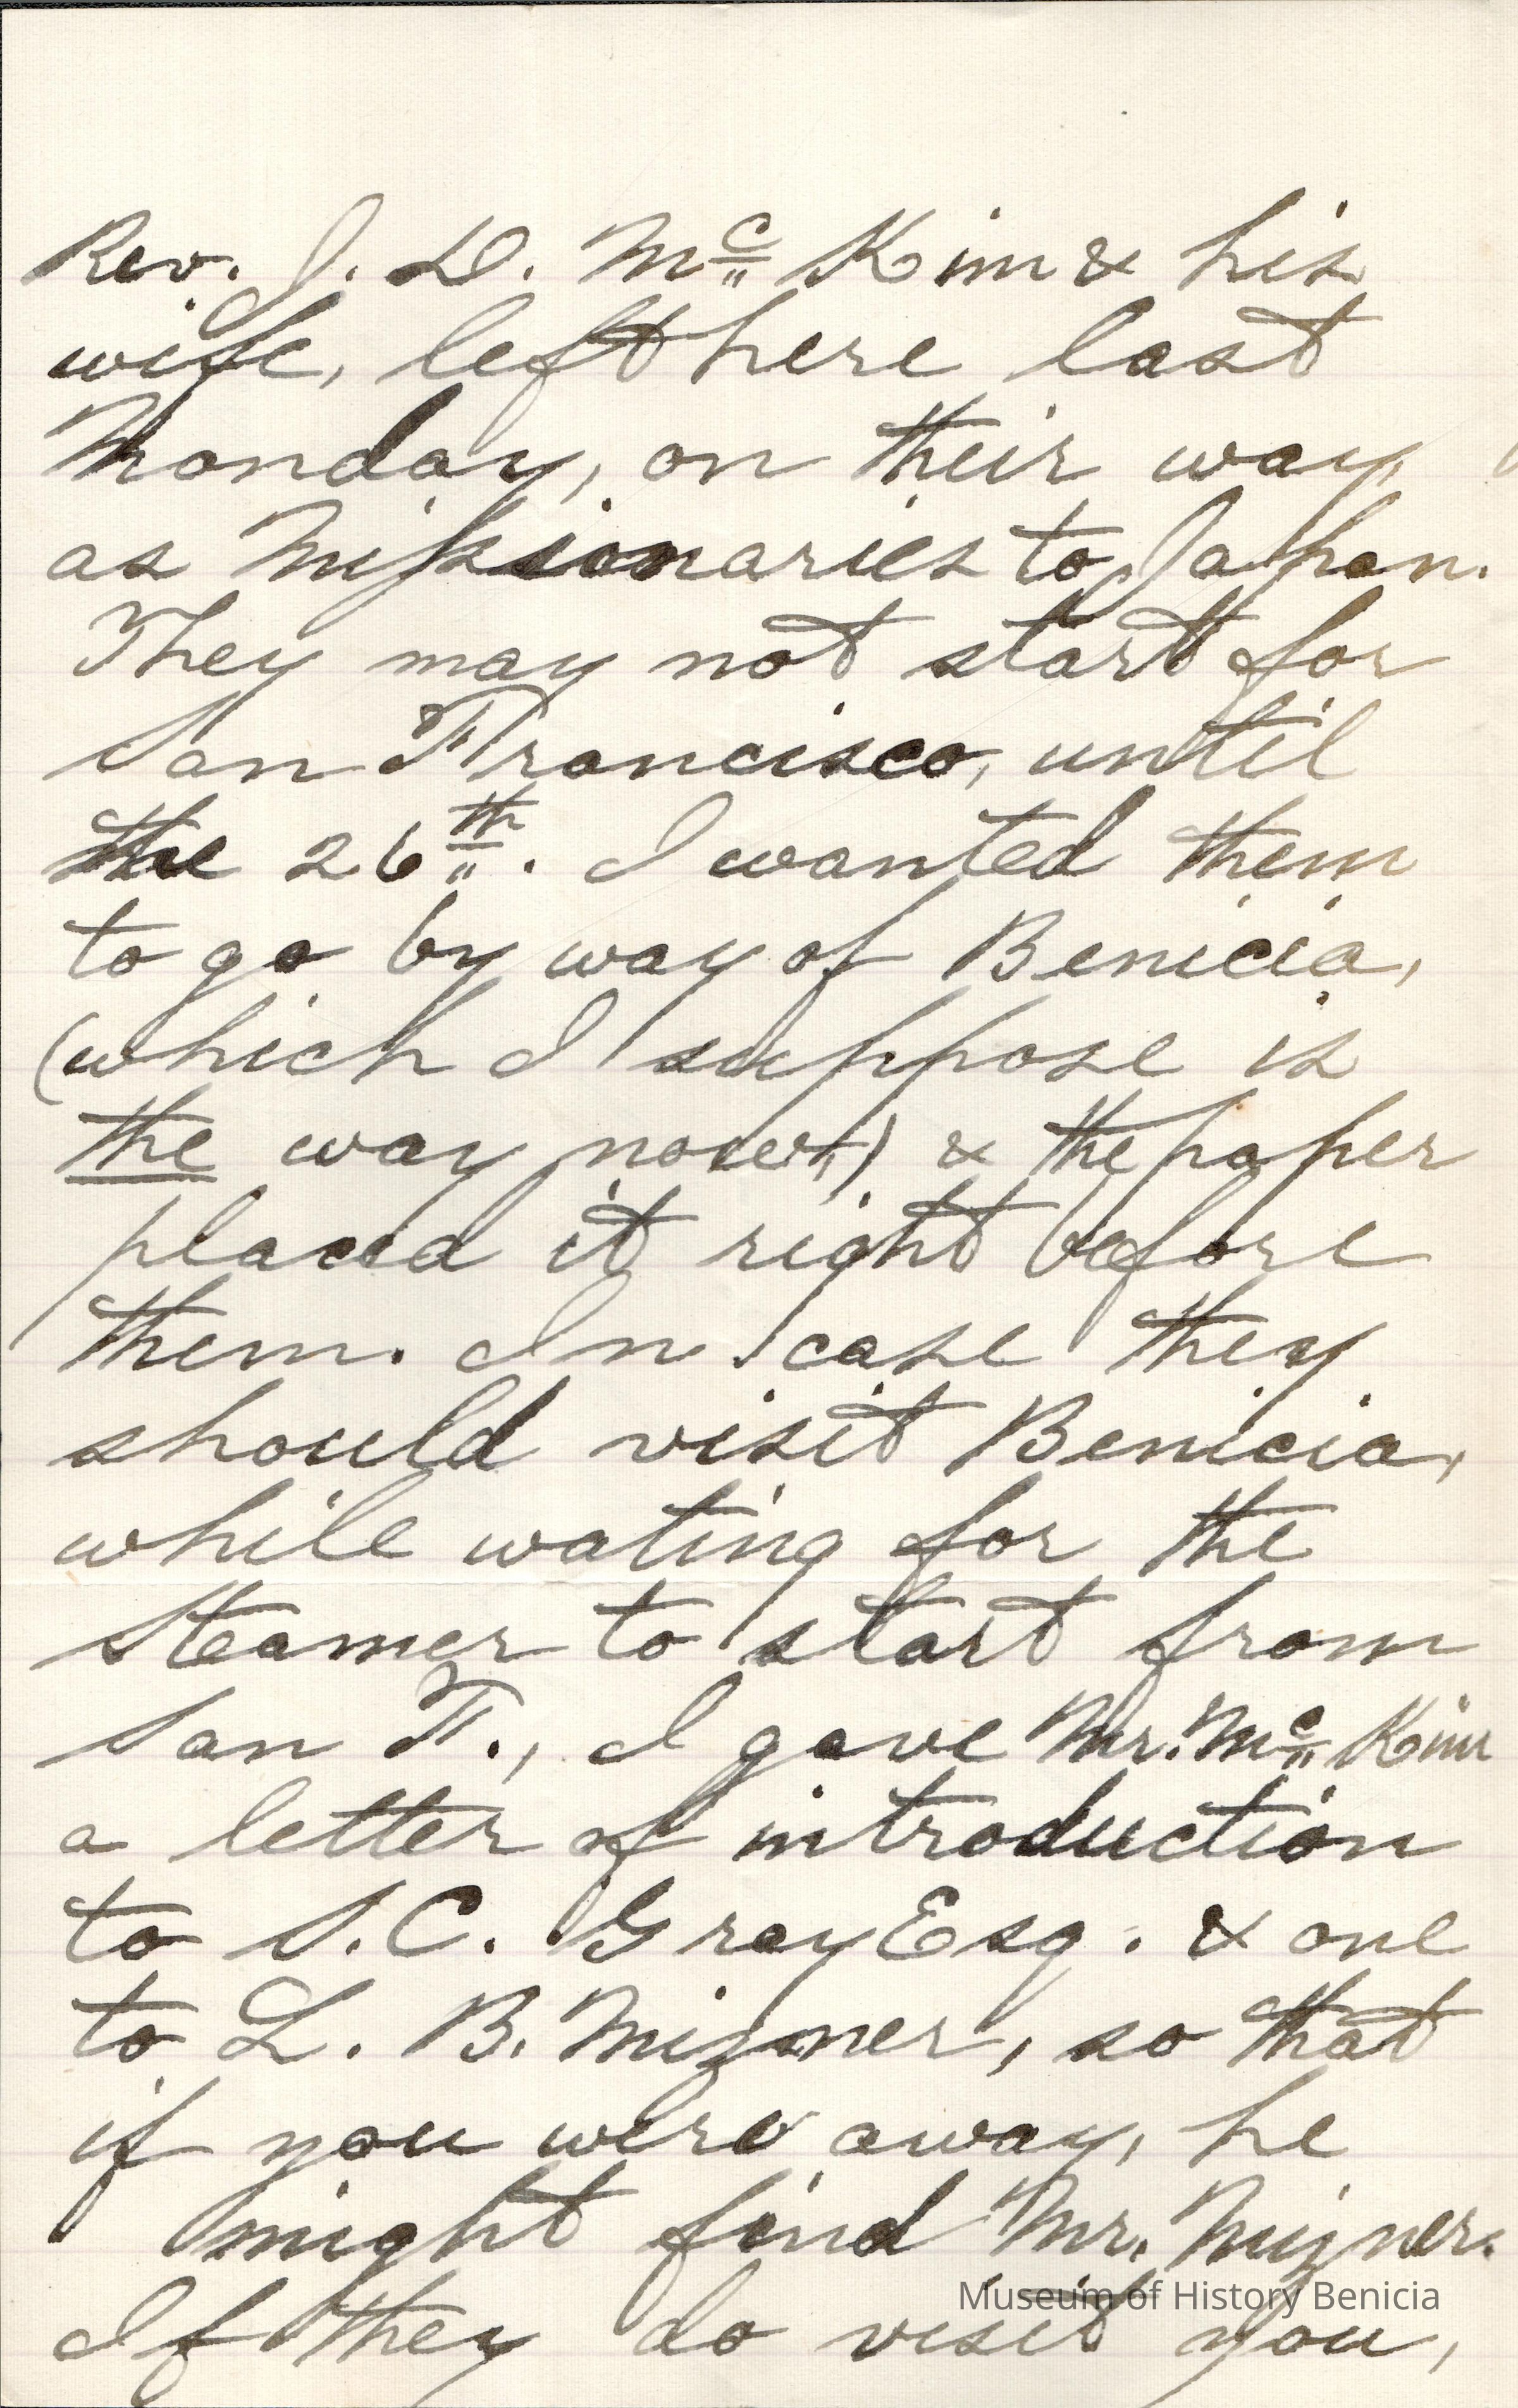 Rev. J. D. Mc Kim & his
wife, left here last
Monday, on their way
as Missionaries to Japan.
They may not start for
San Francisco, until
the 26th. I wanted them
to go by way of Benicia,
(which I suppose is
the way now) & the paper
placed it right before
them. In case they
should visit Benicia,
while wating for the
Steamer to start from
San F., I gave Mr. Mc Kim
a letter of introduction
to S. C. Gray Esq. & one
to L. B. Mizner, so that
if you were away, he
might find Mr. Mizner.
If they do visit you,
Museum of History Benicia